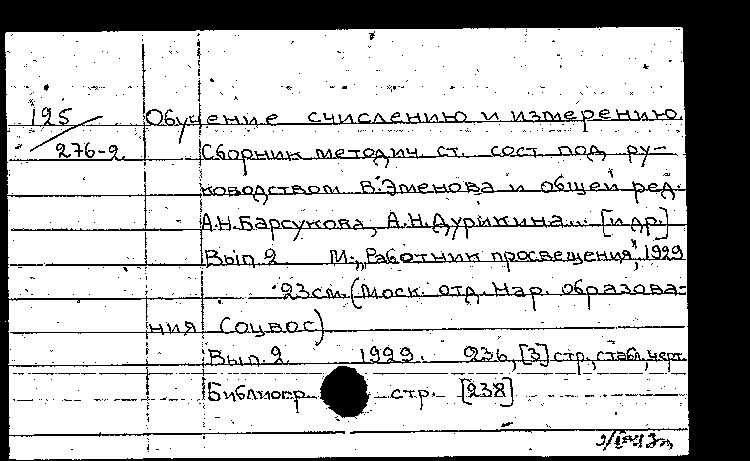 125 Обучение счислению и измерению.
276-2 Сборник методич. ст. сост под ру-
ководством В. Эменова и общей ред.
А.Н. Барсукова, А.Н. Дурикина... [и др.]
Вып. 2 М., „Работник просвещения", 1929
23см. (Моск. отд. нар. образова-
ния Соцвос)
Вып. 2 1929. 236, [3] стр., с табл., черт.
Библиогр. стр. [238]